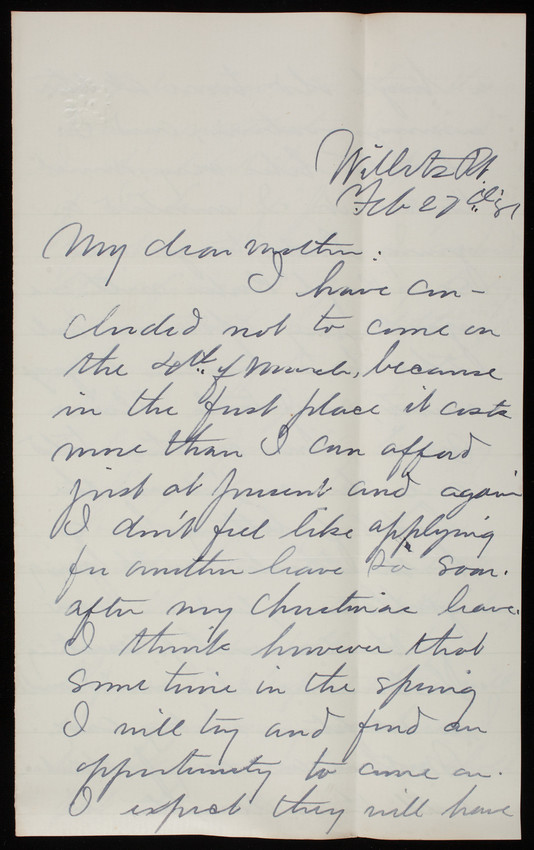 Willets Pt.
Feb 27th '81
My dear mother:
I have con-
cluded not to come on
the 4th of March, because
in the first place it costs
more than I can afford
just at present and again
I don't feel like applying
for another leave so soon
after my Christmas leave.
I think however that
some time in the spring
I will try and find an
opportunity to come on.
I expect they will have